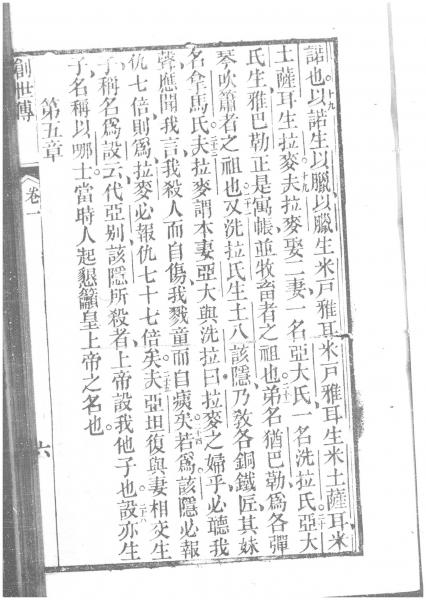 諾也。以諾生以臘、以臘生米戶雅耳、米戶雅耳生米土薩耳、米
土薩耳生拉麥。夫拉麥娶二妻、一名亞大氏、一名洗拉氏。亞大
氏生雅巴勒、正是寓帳並牧畜者之祖也。弟名猶巴勒、爲各彈
琴吹簫者之祖也。又洗拉氏生土八該隱、乃敎各銅鐵匠、其妹
名拿馬氏。夫拉麥謂本妻亞大與洗拉曰、拉麥之婦乎、必聽我
聲、應聞我言、我殺人而自傷、我戮童而自痍矣。若爲該隱必報
仇七倍、則爲拉麥必報仇七十七倍矣。夫亞坦復與妻相交生
子、稱名爲設、云代亞别該隱所殺者、上帝設我他子也。設亦生
子、名稱以哪士、當時人起懇籲皇上帝之名也。
第五章
創世傳
卷一
六